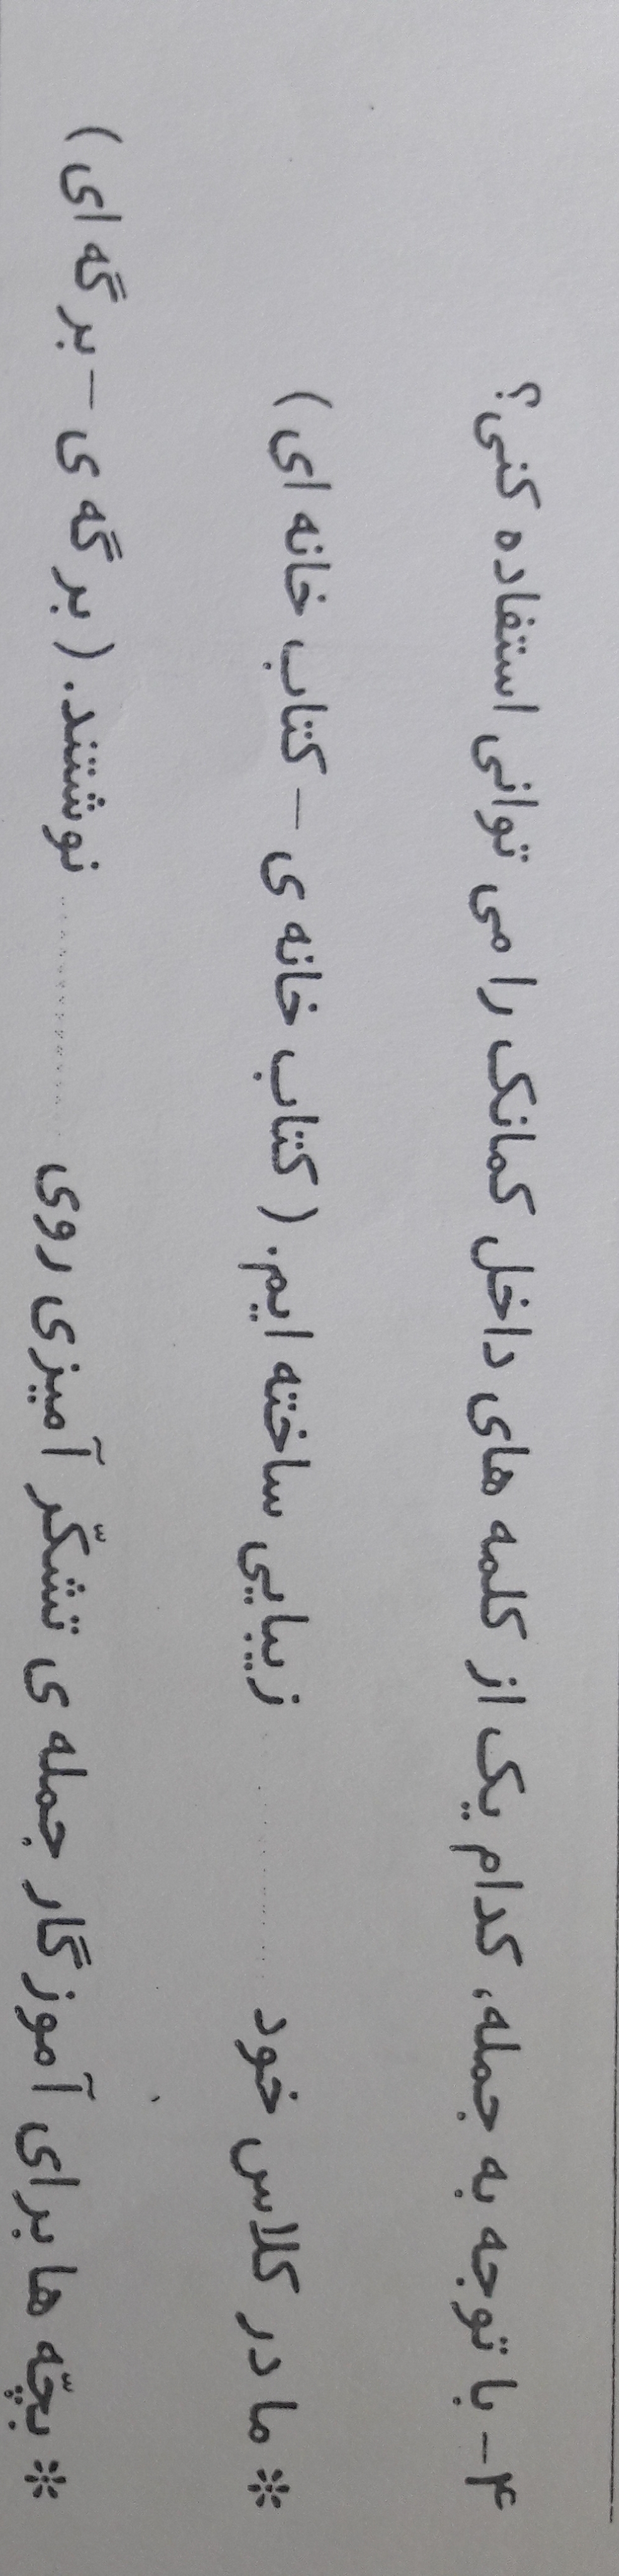 ۴- با توجه به جمله، کدام یک از کلمه های داخل کمانک را می توانی استفاده کنی؟
* ما در کلاس خود .............. زیبایی ساخته ایم. (کتاب خانه ی - کتاب خانه ای)
* بچّه ها برای آموزگار جمله ی تشکّر آمیزی روی .............. نوشتند. (برگه ی - برگه ای)